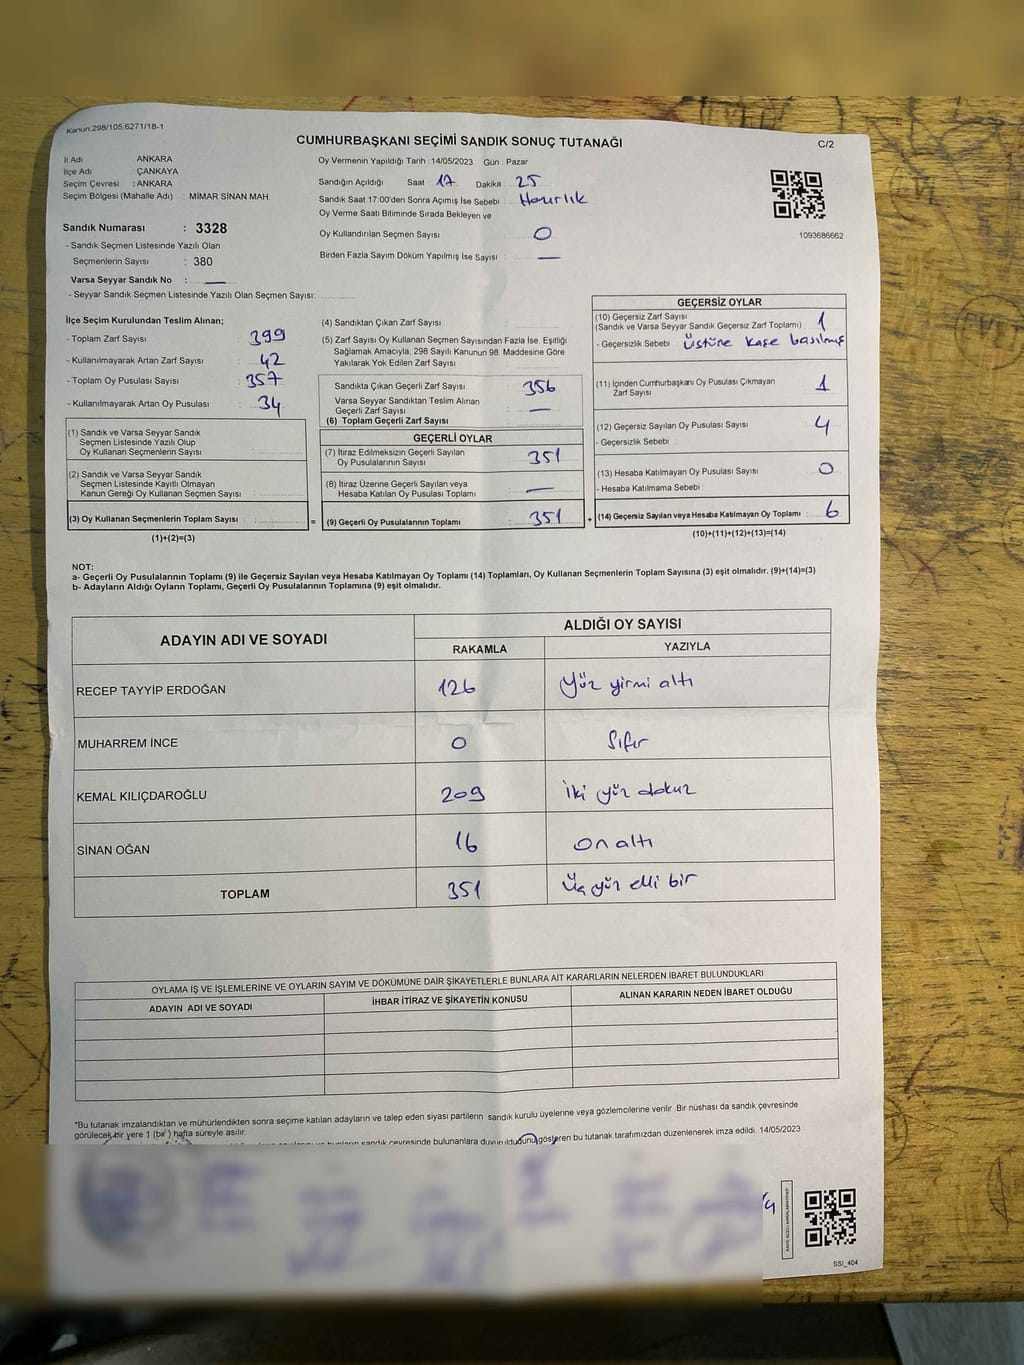 Kanun:298/105;6271/18-1
CUMHURBAŞKANI SEÇİMİ SANDIK SONUÇ TUTANAĞI
C/2
İl Adı ANKARA
İlçe Adı ÇANKAYA
Seçim Çevresi : ANKARA
Seçim Bölgesi (Mahalle Adı) : MİMAR SİNAN MAH.
Sandık Numarası : 3328
- Sandık Seçmen Listesinde Yazılı Olan
Seçmenlerin Sayısı : 380
Varsa Seyyar Sandık No : —
- Seyyar Sandık Seçmen Listesinde Yazılı Olan Seçmen Sayısı:
Oy Vermenin Yapıldığı Tarih : 14/05/2023 Gün : Pazar
Sandığın Açıldığı Saat 17 Dakika : 25
Sandık Saat 17:00'den Sonra Açımış İse Sebebi : Hazırlık
Oy Verme Saati Bitiminde Sırada Bekleyen ve
Oy Kullandırılan Seçmen Sayısı 0
Birden Fazla Sayım Döküm Yapılmış İse Sayısı : —
1093686662
İlçe Seçim Kurulundan Teslim Alınan;
- Toplam Zarf Sayısı : 399
- Kullanılmayarak Artan Zarf Sayısı : 42
- Toplam Oy Pusulası Sayısı : 357
- Kullanılmayarak Artan Oy Pusulası : 34
(1) Sandık ve Varsa Seyyar Sandık
Seçmen Listesinde Yazılı Olup
Oy Kullanan Seçmenlerin Sayısı :
(2) Sandık ve Varsa Seyyar Sandık
Seçmen Listesinde Kayıtlı Olmayan
Kanun Gereği Oy Kullanan Seçmen Sayısı :
(3) Oy Kullanan Seçmenlerin Toplam Sayısı :
(1)+(2)=(3)
(4) Sandıktan Çıkan Zarf Sayısı :
(5) Zarf Sayısı Oy Kullanan Seçmen Sayısından Fazla İse, Eşitliği
Sağlamak Amacıyla, 298 Sayılı Kanunun 98. Maddesine Göre
Yakılarak Yok Edilen Zarf Sayısı :
Sandıkta Çıkan Geçerli Zarf Sayısı : 356
Varsa Seyyar Sandıktan Teslim Alınan
Geçerli Zarf Sayısı : —
(6) Toplam Geçerli Zarf Sayısı :
GEÇERLİ OYLAR
(7) İtiraz Edilmeksizin Geçerli Sayılan
Oy Pusulalarının Sayısı : 351
(8) İtiraz Üzerine Geçerli Sayılan veya
Hesaba Katılan Oy Pusulası Toplamı : —
= (9) Geçerli Oy Pusulalarının Toplamı : 351
GEÇERSİZ OYLAR
(10) Geçersiz Zarf Sayısı
(Sandık ve Varsa Seyyar Sandık Geçersiz Zarf Toplamı) : 1
- Geçersizlik Sebebi : Üstüne kaşe basılmış
(11) İçinden Cumhurbaşkanı Oy Pusulası Çıkmayan
Zarf Sayısı : 1
(12) Geçersiz Sayılan Oy Pusulası Sayısı : 4
- Geçersizlik Sebebi :
(13) Hesaba Katılmayan Oy Pusulası Sayısı : 0
- Hesaba Katılmama Sebebi :
+ (14) Geçersiz Sayılan veya Hesaba Katılmayan Oy Toplamı : 6
(10)+(11)+(12)+(13)=(14)
NOT:
a- Geçerli Oy Pusulalarının Toplamı (9) ile Geçersiz Sayılan veya Hesaba Katılmayan Oy Toplamı (14) Toplamları, Oy Kullanan Seçmenlerin Toplam Sayısına (3) eşit olmalıdır. (9)+(14)=(3)
b- Adayların Aldığı Oyların Toplamı, Geçerli Oy Pusulalarının Toplamına (9) eşit olmalıdır.
ADAYIN ADI VE SOYADI
ALDIĞI OY SAYISI
RAKAMLA YAZIYLA
RECEP TAYYİP ERDOĞAN 126 Yüz yirmi altı
MUHARREM İNCE 0 Sıfır
KEMAL KILIÇDAROĞLU 209 İki yüz dokuz
SİNAN OĞAN 16 On altı
TOPLAM 351 Üç yüz elli bir
OYLAMA İŞ VE İŞLEMLERİNE VE OYLARIN SAYIM VE DÖKÜMÜNE DAİR ŞİKAYETLERLE BUNLARA AİT KARARLARIN NELERDEN İBARET BULUNDUKLARI
ADAYIN ADI VE SOYADI İHBAR İTİRAZ VE ŞİKAYETİN KONUSU ALINAN KARARIN NEDEN İBARET OLDUĞU
*Bu tutanak imzalandıktan ve mühürlendikten sonra seçime katılan adayların ve talep eden siyasi partilerin sandık kurulu üyelerine veya gözlemcilerine verilir. Bir nüshası da sandık çevresinde
görülecek bir yere 1 (bir) hafta süreyle asılır.
sandık çevresinde bulunanlara duyurulduğunu gösteren bu tutanak tarafımızdan düzenlenerek imza edildi. 14/05/2023
SSI_404